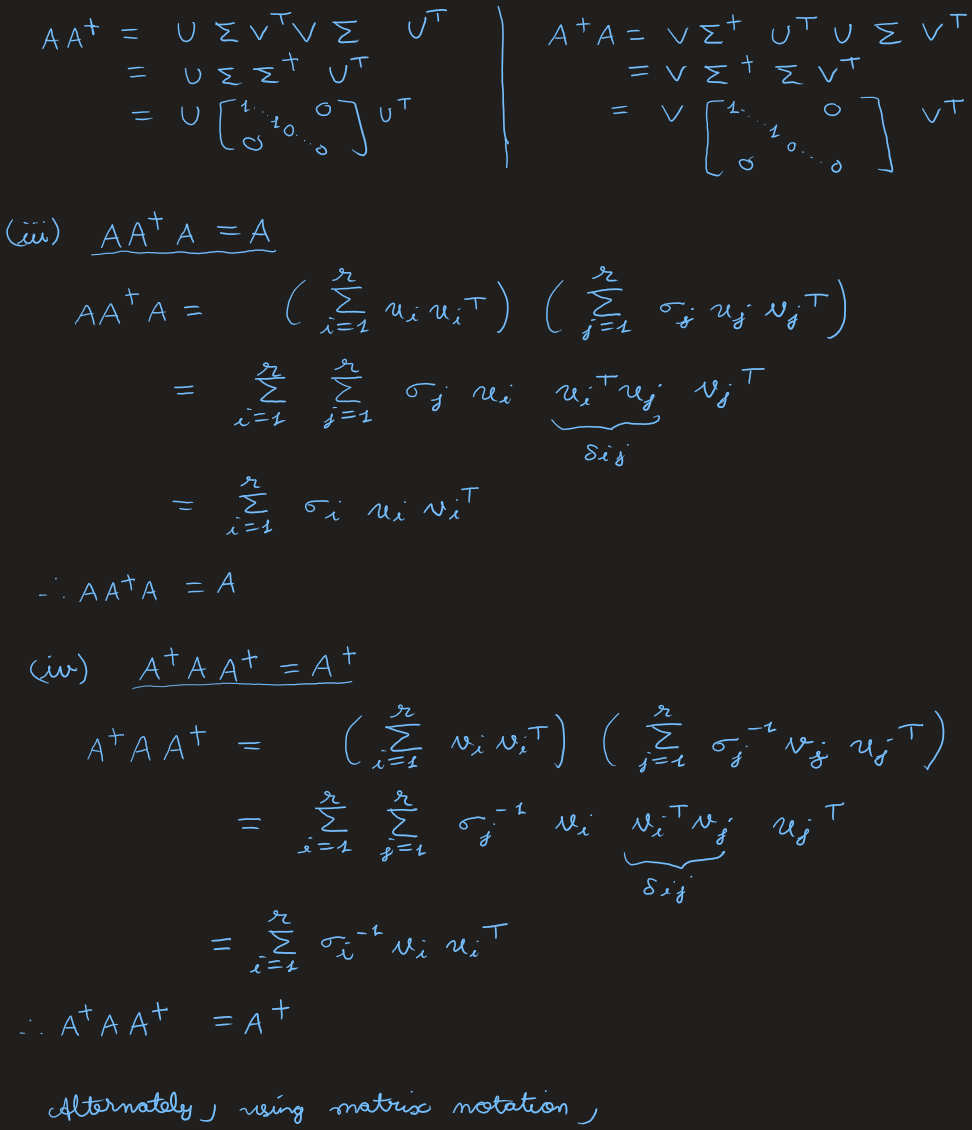 AA⁺ = U Σ VᵀV Σ Uᵀ
= U Σ Σ⁺ Uᵀ
= U [1 ⋱ 1 0 ⋱ 0 0 0] Uᵀ
A⁺A = V Σ⁺ Uᵀ U Σ Vᵀ
= V Σ⁺ Σ Vᵀ
= V [1 ⋱ 1 0 ⋱ 0 0 0] Vᵀ
(iii) AA⁺A = A
AA⁺A = (∑_{i=1}^{r} u_i u_iᵀ) (∑_{j=1}^{r} σ_j u_j v_jᵀ)
= ∑_{i=1}^{r} ∑_{j=1}^{r} σ_j u_i u_iᵀu_j v_jᵀ
δ_{ij}
= ∑_{i=1}^{r} σ_i u_i v_iᵀ
∴ AA⁺A = A
(iv) A⁺AA⁺ = A⁺
A⁺AA⁺ = (∑_{i=1}^{r} v_i v_iᵀ) (∑_{j=1}^{r} σ_j⁻¹ v_j u_jᵀ)
= ∑_{i=1}^{r} ∑_{j=1}^{r} σ_j⁻¹ v_i v_iᵀv_j u_jᵀ
δ_{ij}
= ∑_{i=1}^{r} σ_i⁻¹ v_i u_iᵀ
∴ A⁺AA⁺ = A⁺
Alternately, using matrix notation,